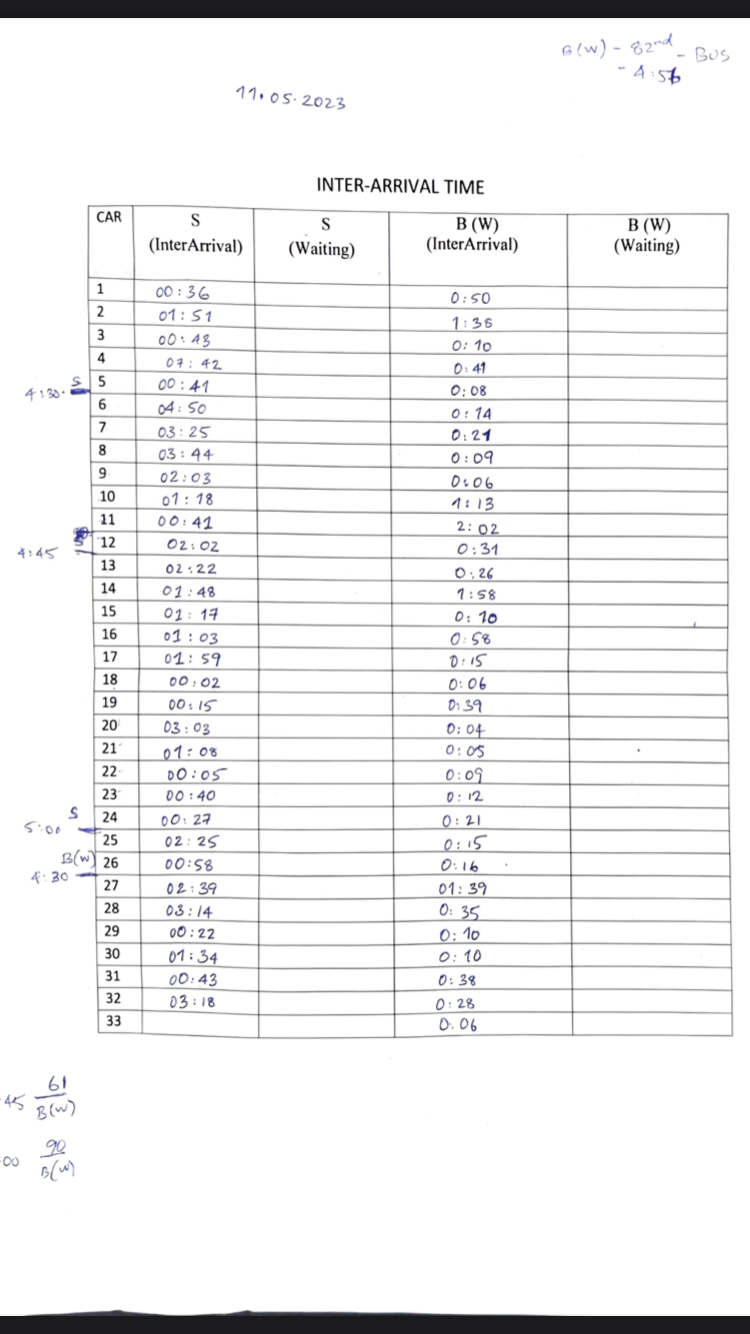 B(W) - 82nd - BUS
- 4:56
11.05.2023
INTER-ARRIVAL TIME
CAR S (InterArrival) S (Waiting) B (W) (InterArrival) B (W) (Waiting)
1 00:36 0:50
2 01:51 1:36
3 00:43 0:10
4 07:42 0:41
4:30. S 5 00:41 0:08
6 04:50 0:14
7 03:25 0:21
8 03:44 0:09
9 02:03 0:06
10 01:18 1:13
11 00:41 2:02
4:45 12 02:02 0:31
13 02:22 0:26
14 01:48 1:58
15 01:17 0:10
16 01:03 0:58
17 01:59 0:15
18 00:02 0:06
19 00:15 0:39
20 03:03 0:04
21 01:08 0:05
22 00:05 0:09
23 00:40 0:12
5:00 S 24 00:27 0:21
25 02:25 0:15
B(W) 26 00:58 0:16
4:30 27 02:39 01:39
28 03:14 0:35
29 00:22 0:10
30 01:34 0:10
31 00:43 0:38
32 03:18 0:28
33 0.06
45 61
B(W)
00 90
B(W)